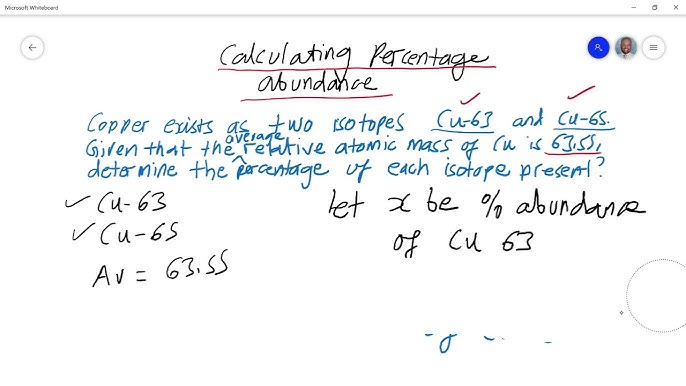 Microsoft Whiteboard
Calculating Percentage
abundance
Copper exists as two isotopes Cu-63 and Cu-65.
Given that the average relative atomic mass of Cu is 63.55,
determine the percentage of each isotope present?
Cu-63
Cu-65
Av = 63.55
Let x be % abundance
of Cu 63